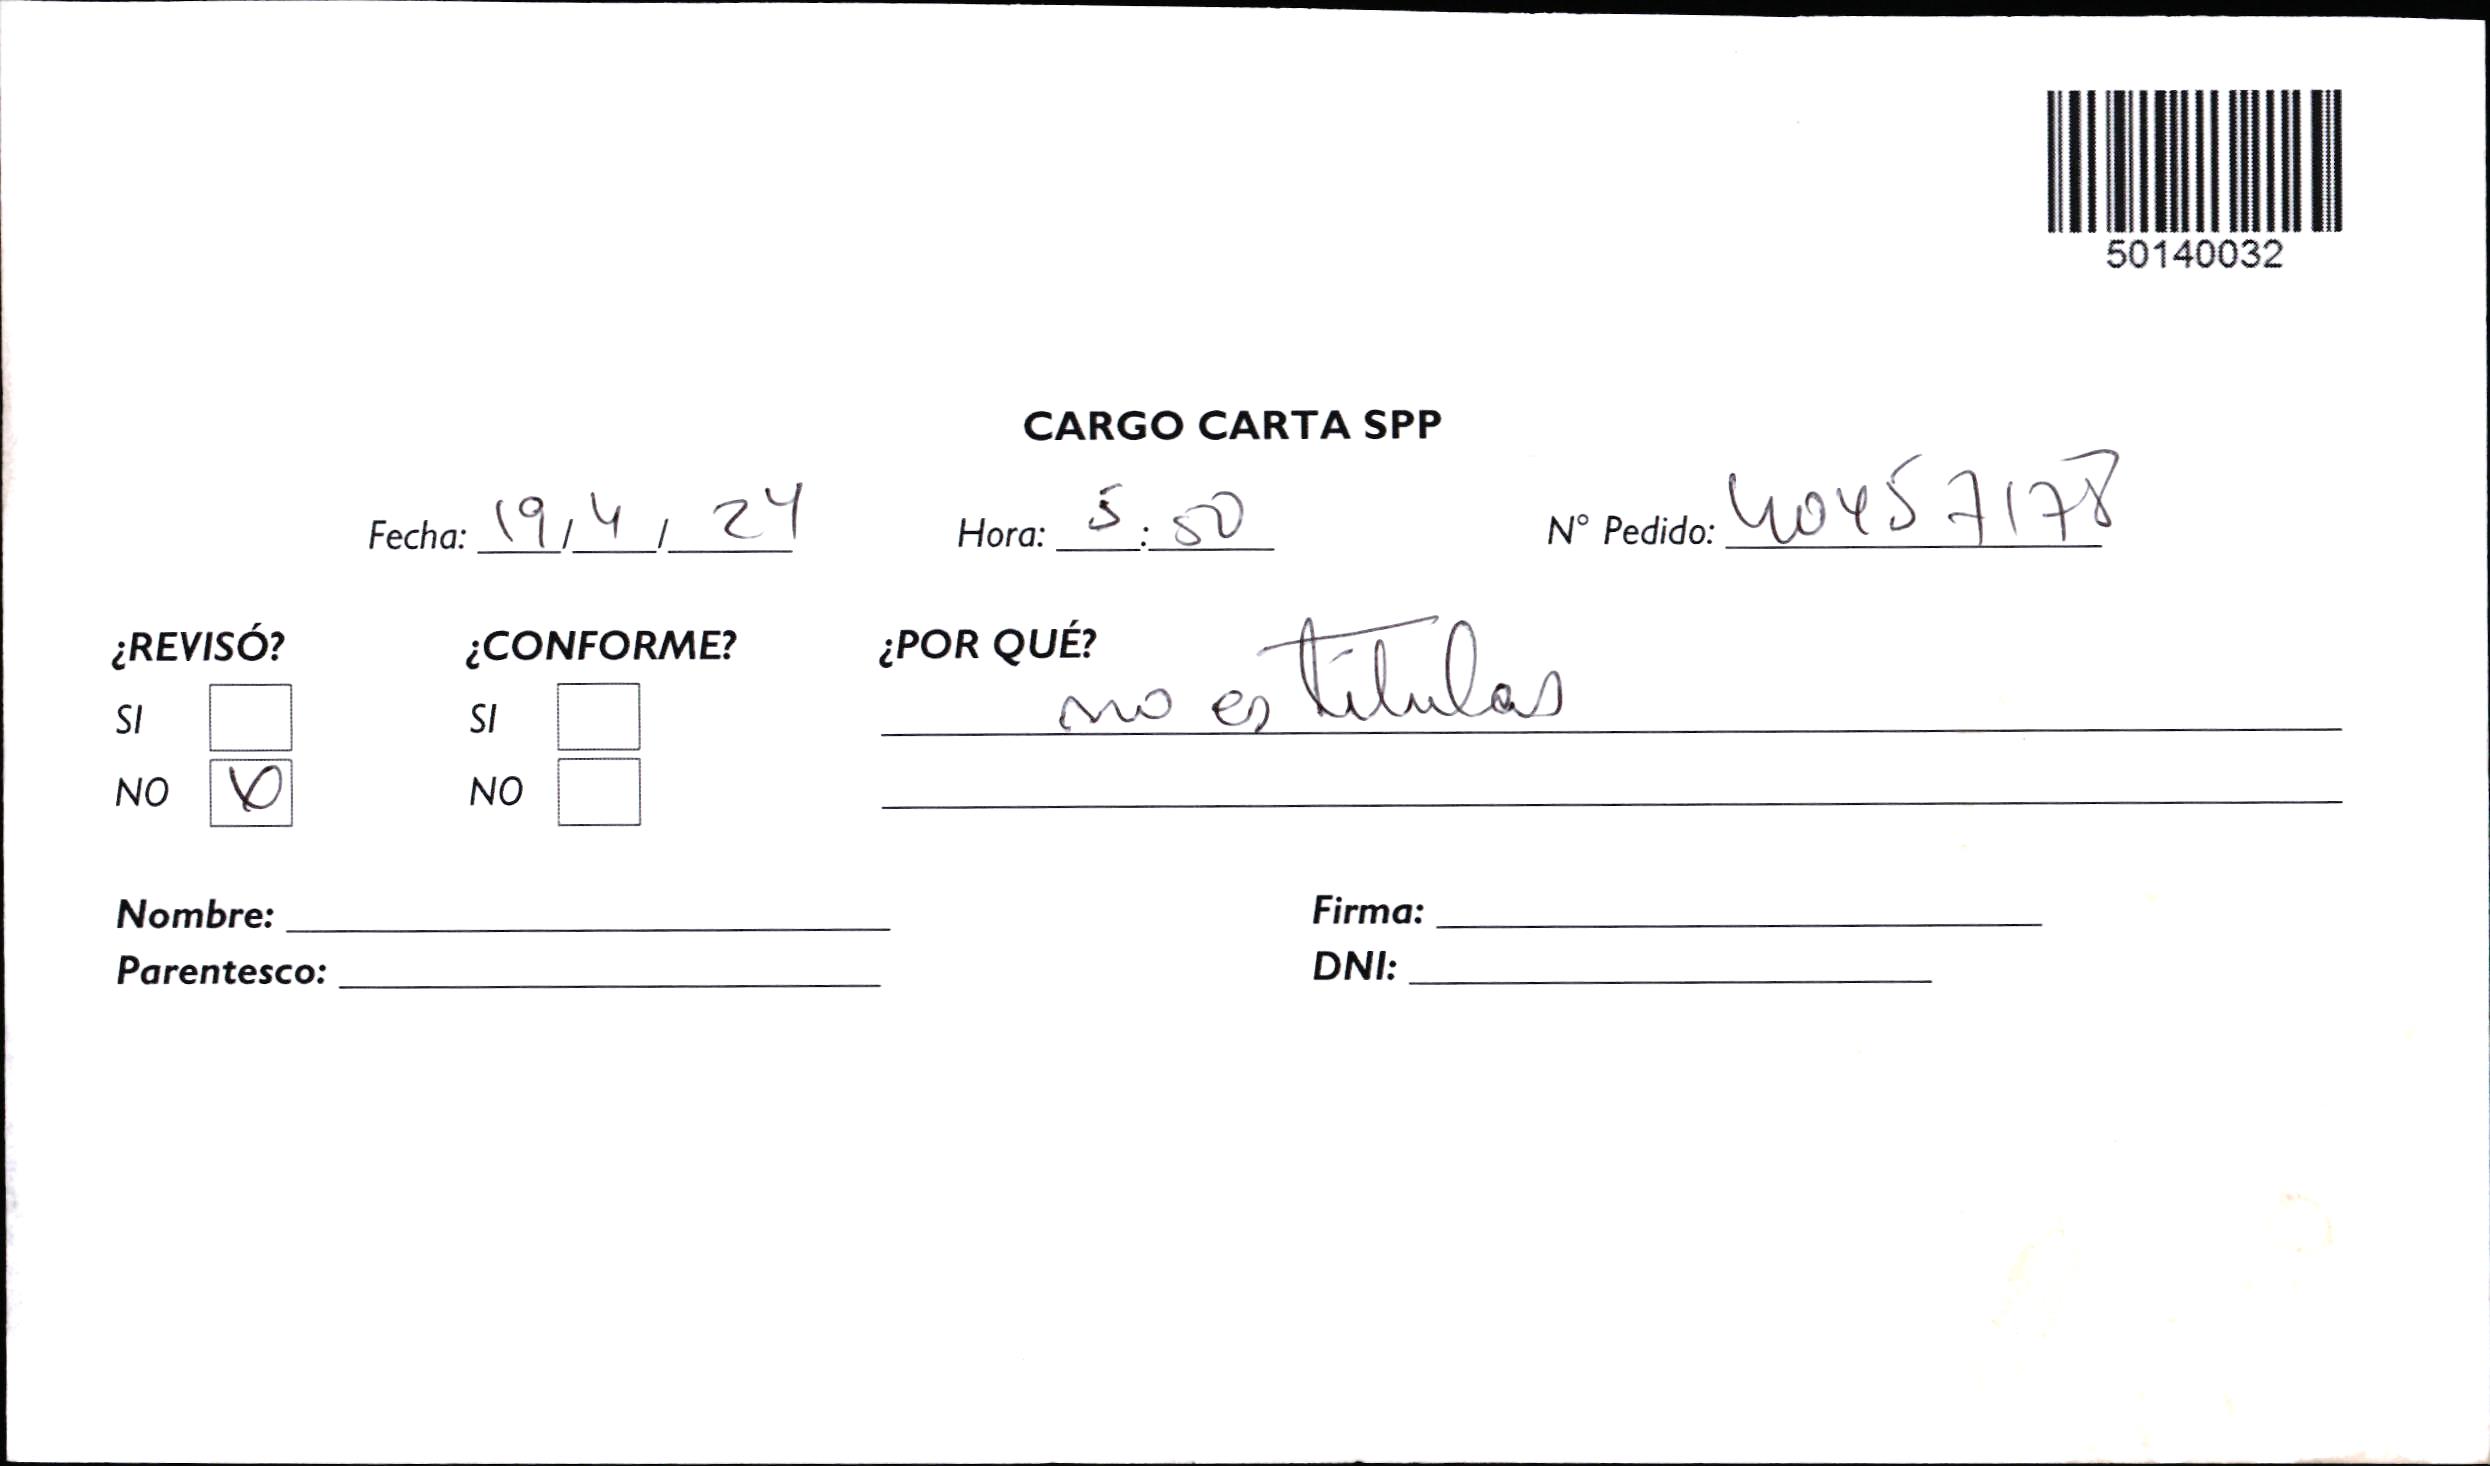 50140032
CARGO CARTA SPP
Fecha: 19/4/24 Hora: 5:50 N° Pedido: 40457178
¿REVISÓ? ¿CONFORME? ¿POR QUÉ?
SI SI no es titular
NO NO
Nombre: Firma:
Parentesco: DNI: